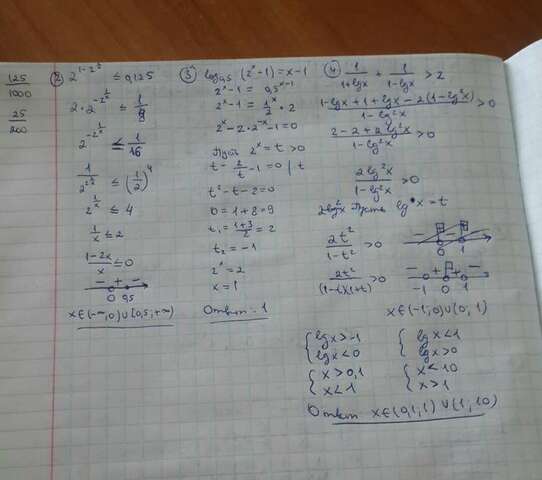 125
1000
25
200
② 2^{1-2^{1/x}} ≤ 0,125
2·2^{-2^{1/x}} ≤ 1/8
2^{-2^{1/x}} ≤ 1/16
1/2^{2^{1/x}} ≤ (1/2)^4
2^{1/x} ≤ 4
1/x ≤ 2
(1-2x)/x ≤ 0
- + -
0 0,5
x∈(-∞,0)∪[0,5;+∞)
③ log_{0,5}(2^x-1)=x-1
2^x-1 = 0,5^{x-1}
2^x-1 = 1/2^x · 2
2^x-2·2^{-x}-1=0
Пусть 2^x=t>0
t - 2/t - 1 = 0 | t
t²-t-2=0
D=1+8=9
t₁=(1+3)/2=2
t₂=-1
2^x=2
x=1
Ответ: 1
④ 1/(1+lgx) + 1/(1-lgx) > 2
(1-lgx+1+lgx-2(1-lg²x))/(1-lg²x) > 0
(2-2+2lg²x)/(1-lg²x) > 0
2lg²x/(1-lg²x) > 0
Пусть lg x = t
2t²/(1-t²) > 0
0 1
2t²/((1-t)(1+t)) > 0
- + + -
-1 0 1
x∈(-1,0)∪(0,1)
{lgx>-1 {lgx<1
{lgx<0 {lgx>0
{x>0,1 {x<10
{x<1 {x>1
Ответ x∈(0,1;1)∪(1,10)